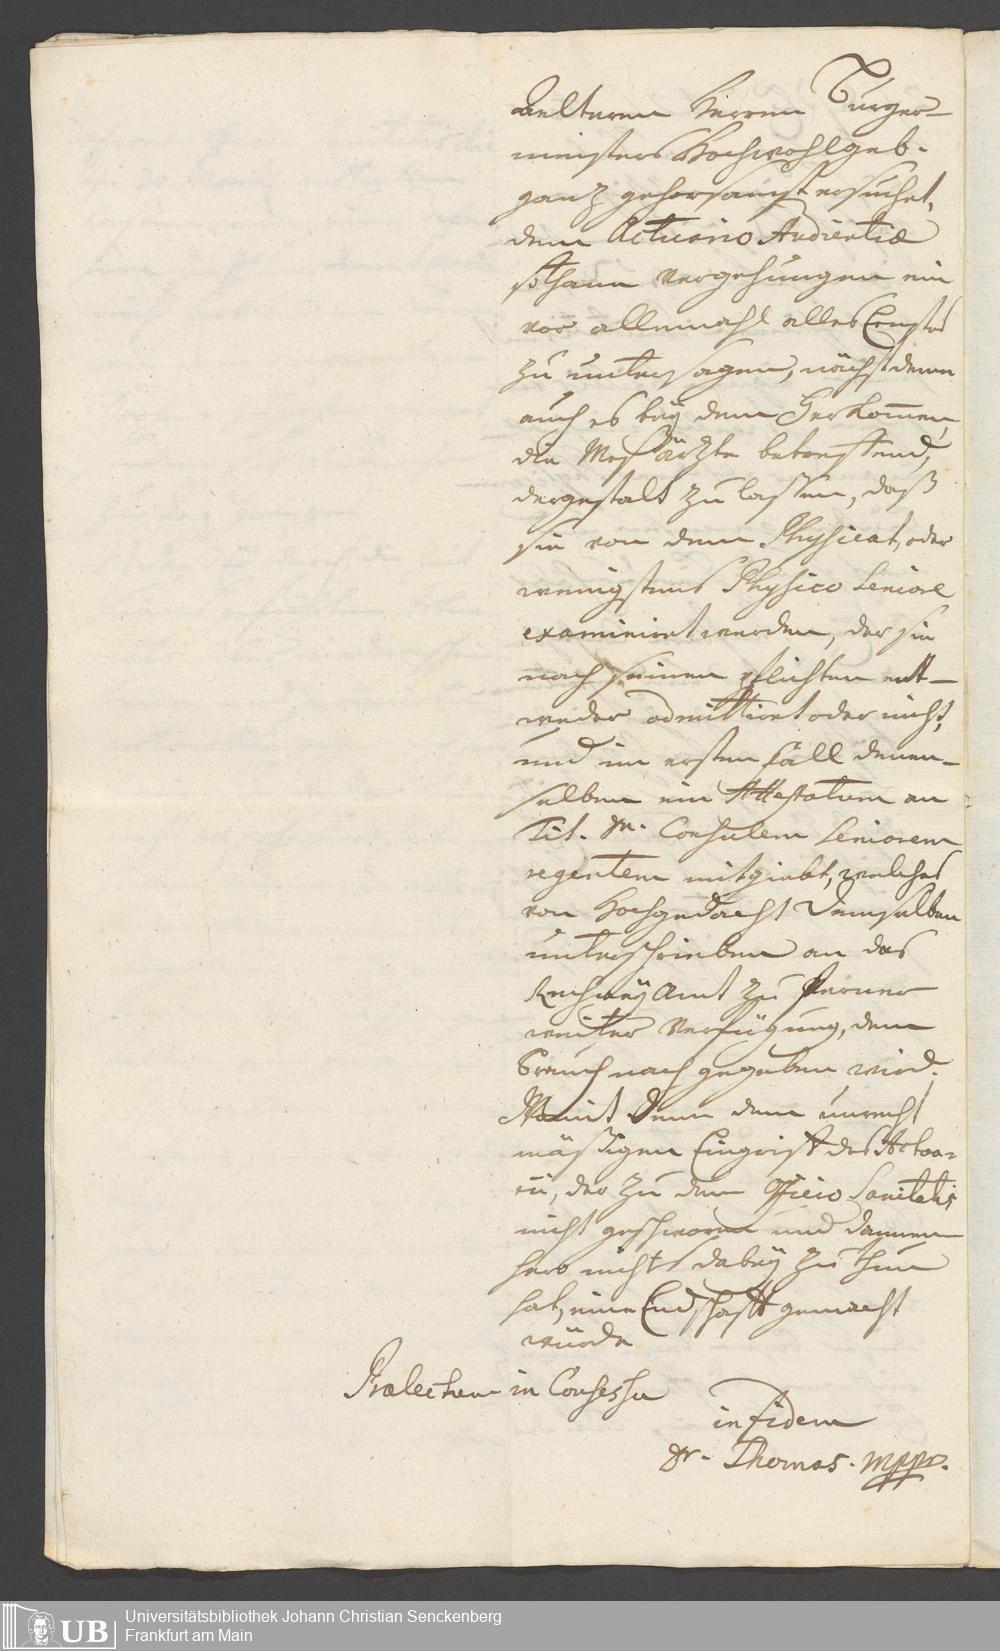 aelteren Herren Burger-
meisters Hochwohlgeb.
ganz gehorsamst ersuchet,
dem Actuario Audientiæ
sothane Vergehungen ein
vor allemahl alles Ernstes
zu untersagen, nächstdeme
auch es beÿ dem Herkom̅en,
die Meßärzte betreffend,
dergestalt zu lassen, daß
sie von dem Physicat, oder
wenigstens Physico Seniore
examiniret werden, der sie
nach seinen pflichten ent-
weder admittiret oder nicht,
und im ersten Fall denen-
selben ein Attestatum an
Tit. Hr. Consulem Seniorem
regentem mitgiebt, welches
von Hochgedacht Demselben
unterschrieben an das
Rechneÿ Amt zu ferner
weiter Verfügung, dem
Brauch nach gegeben wird.
Womit denn dem unrecht
mäßigen Eingriff des Actua-
rii, der zu dem Officio Sanitatis
nicht geschworen und dannen
hero nichts dabeÿ zu thun
hat, eine Endschafft gemacht
würde
Prælectum in Consessu
in fidem
Dr. Thomas. mppr.
Universitätsbibliothek Johann Christian Senckenberg
Frankfurt am Main
UB